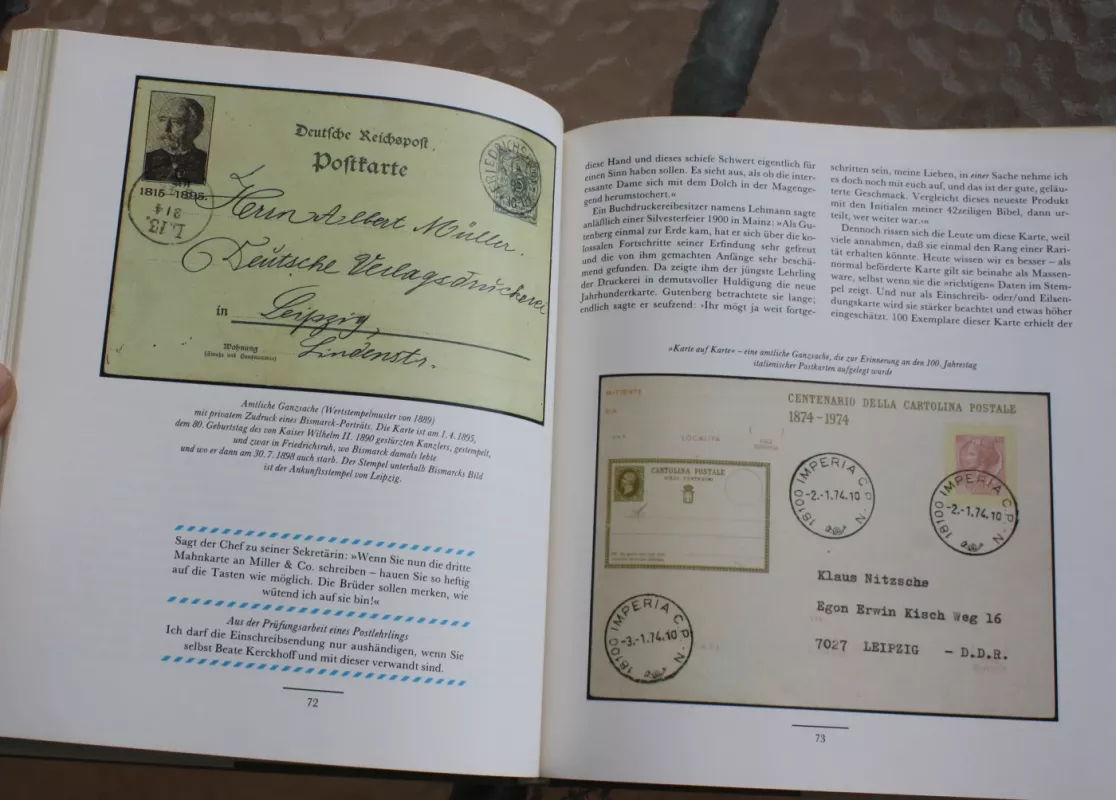 Deutsche Reichspost
Postkarte
1815-1895.
Herrn Albert Müller.
Deutsche Verlagsdruckerei
in Leipzig,
Lindenstr.
Wohnung
(Straße und Hausnummer)
Amtliche Ganzsache (Wertstempelmuster von 1889)
mit privatem Zudruck eines Bismarck-Porträts. Die Karte ist am 1. 4. 1895,
dem 80. Geburtstag des von Kaiser Wilhelm II. 1890 gestürzten Kanzlers, gestempelt,
und zwar in Friedrichsruh, wo Bismarck damals lebte
und wo er dann am 30. 7. 1898 auch starb. Der Stempel unterhalb Bismarcks Bild
ist der Ankunftsstempel von Leipzig.
Sagt der Chef zu seiner Sekretärin: »Wenn Sie nun die dritte
Mahnkarte an Miller & Co. schreiben – hauen Sie so heftig
auf die Tasten wie möglich. Die Brüder sollen merken, wie
wütend ich auf sie bin!«
Aus der Prüfungsarbeit eines Postlehrlings
Ich darf die Einschreibsendung nur aushändigen, wenn Sie
selbst Beate Kerckhoff und mit dieser verwandt sind.
72
diese Hand und dieses schiefe Schwert eigentlich für
einen Sinn haben sollen. Es sieht aus, als ob die inter-
essante Dame sich mit dem Dolch in der Magenge-
gend herumstochert.«
Ein Buchdruckereibesitzer namens Lehmann sagte
anläßlich einer Silvesterfeier 1900 in Mainz: »Als Gu-
tenberg einmal zur Erde kam, hat er sich über die ko-
lossalen Fortschritte seiner Erfindung sehr gefreut
und die von ihm gemachten Anfänge sehr beschä-
mend gefunden. Da zeigte ihm der jüngste Lehrling
der Druckerei in demutsvoller Huldigung die neue
Jahrhundertkarte. Gutenberg betrachtete sie lange;
endlich sagte er seufzend: ›Ihr mögt ja weit fortge-
schritten sein, meine Lieben, in einer Sache nehme ich
es doch noch mit euch auf, und das ist der gute, geläu-
terte Geschmack. Vergleicht dieses neueste Produkt
mit den Initialen meiner 42zeiligen Bibel, dann ur-
teilt, wer weiter war.‹«
Dennoch rissen sich die Leute um diese Karte, weil
viele annahmen, daß sie einmal den Rang einer Rari-
tät erhalten könnte. Heute wissen wir es besser – als
normal beförderte Karte gilt sie beinahe als Massen-
ware, selbst wenn sie die »richtigen« Daten im Stem-
pel zeigt. Und nur als Einschreib- oder/und Eilsen-
dungskarte wird sie stärker beachtet und etwas höher
eingeschätzt. 100 Exemplare dieser Karte erhielt der
»Karte auf Karte« – eine amtliche Ganzsache, die zur Erinnerung an den 100. Jahrestag
italienischer Postkarten aufgelegt wurde
MITTENTE
VIA
LOCALITÀ
CENTENARIO DELLA CARTOLINA POSTALE
1874-1974
CARTOLINA POSTALE
DIECI CENTESIMI
18100 IMPERIA C.P.-N.
-2.-1.74.10
18100 IMPERIA C.P.-N.
-2.-1.74.10
18100 IMPERIA C.P.-N.
-3.-1.74.10
Klaus Nitzsche
Egon Erwin Kisch Weg 16
7027 LEIPZIG - D.D.R.
73